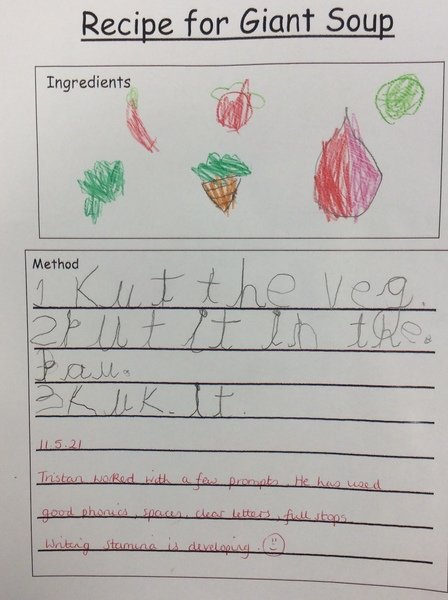 Recipe for Giant Soup
Ingredients
Method
1 Kut the veg.
2 put it in the.
Pan.
3 Kuk. It.
11.5.21
Tristan worked with a few prompts. He has used
good phonics, spaces, clear letters, full stops.
Writing stamina is developing.